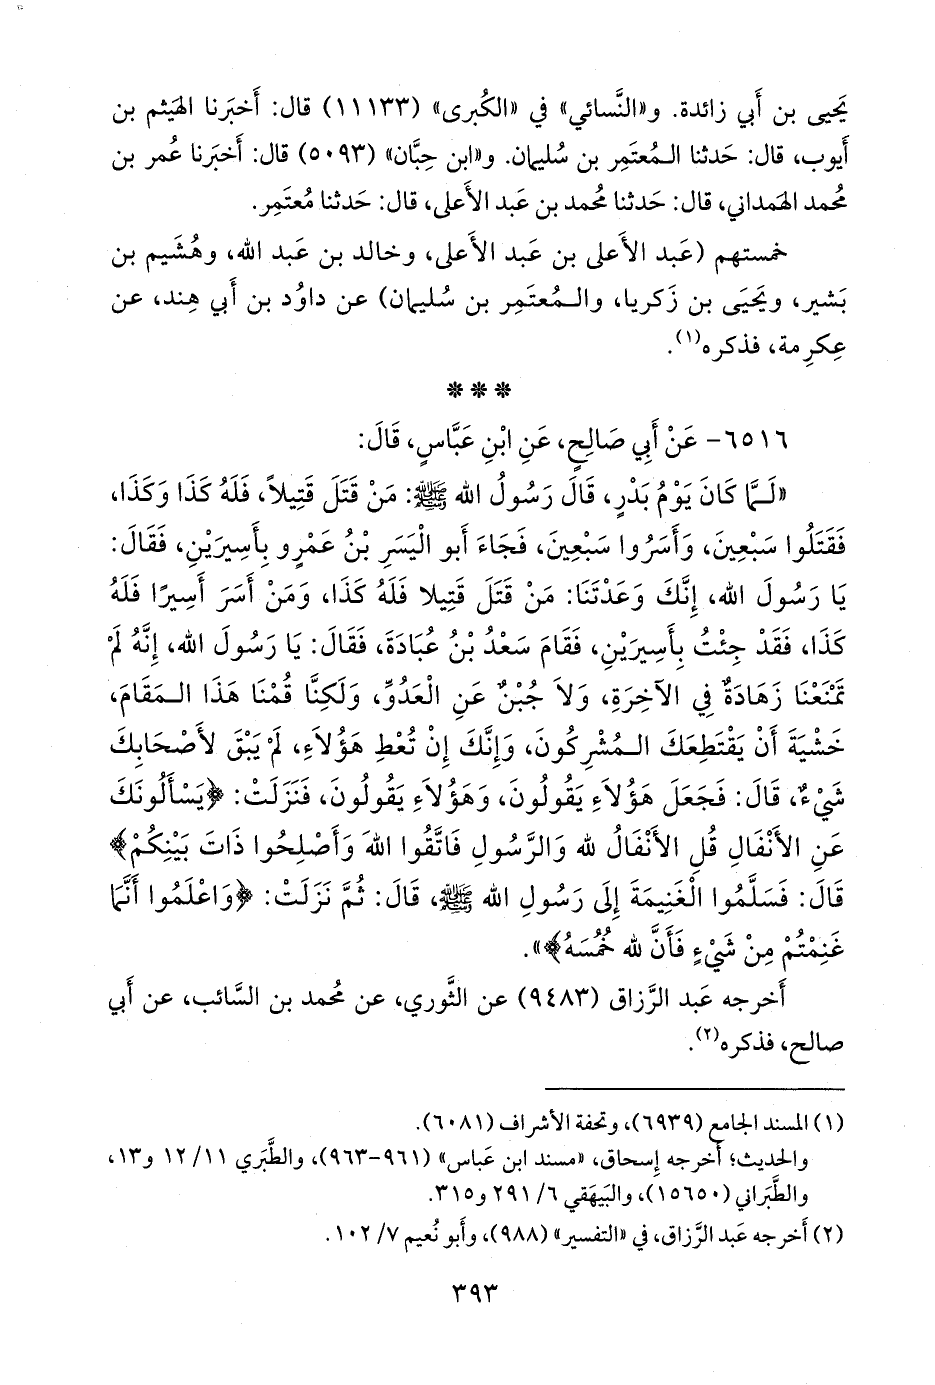 يَحيى بن أَبي زائدة. و«النَّسائي» في «الكُبرى» (١١١٣٣) قال: أَخبَرنا الهَيثم بن
أَيوب، قال: حَدثنا المُعتَمِر بن سُليمان. و«ابن حِبَّان» (٥٠٩٣) قال: أَخبَرنا عُمر بن
مُحمد الهَمداني، قال: حَدثنا مُحمد بن عَبد الأَعلى، قال: حَدثنا مُعتَمِر.
خمستهم (عَبد الأَعلى بن عَبد الأَعلى، وخالد بن عَبد الله، وهُشَيم بن
بَشير، ويَحيَى بن زَكريا، والمُعتَمِر بن سُليمان) عن داوُد بن أَبي هِند، عن
عِكرِمة، فذكره(١).
***
٦٥١٦- عَنْ أَبِي صَالِحٍ، عَنِ ابْنِ عَبَّاسٍ، قَالَ:
«لَمَّا كَانَ يَوْمُ بَدْرٍ، قَالَ رَسُولُ الله ﷺ: مَنْ قَتَلَ قَتِيلاً، فَلَهُ كَذَا وَكَذَا،
فَقَتَلُوا سَبْعِينَ، وَأَسَرُوا سَبْعِينَ، فَجَاءَ أَبو الْيَسَرِ بْنُ عَمْرٍو بِأَسِيرَيْنِ، فَقَالَ:
يَا رَسُولَ الله، إِنَّكَ وَعَدْتَنَا: مَنْ قَتَلَ قَتِيلا فَلَهُ كَذَا، وَمَنْ أَسَرَ أَسِيرًا فَلَهُ
كَذَا، فَقَدْ جِئْتُ بِأَسِيرَيْنِ، فَقَامَ سَعْدُ بْنُ عُبَادَةَ، فَقَالَ: يَا رَسُولَ الله، إِنَّهُ لَمْ
تَمْنَعْنَا زَهَادَةٌ فِي الآخِرَةِ، وَلاَ جُبْنٌ عَنِ الْعَدُوِّ، وَلَكِنَّا قُمْنَا هَذَا المَقَامَ،
خَشْيَةَ أَنْ يَقْتَطِعَكَ المُشْرِكُونَ، وَإِنَّكَ إِنْ تُعْطِ هَؤُلاَءِ، لَمْ يَبْقَ لأَصْحَابِكَ
شَيْءٌ، قَالَ: فَجَعَلَ هَؤُلاَءِ يَقُولُونَ، وَهَؤُلاَءِ يَقُولُونَ، فَنَزَلَتْ: ﴿يَسْأَلُونَكَ
عَنِ الأَنْفَالِ قُلِ الأَنْفَالُ لله وَالرَّسُولِ فَاتَّقُوا اللهَ وَأَصْلِحُوا ذَاتَ بَيْنِكُمْ﴾
قَالَ: فَسَلَّمُوا الْغَنِيمَةَ إِلَى رَسُولِ الله ﷺ، قَالَ: ثُمَّ نَزَلَتْ: ﴿وَاعْلَمُوا أَنَّمَا
غَنِمْتُمْ مِنْ شَيْءٍ فَأَنَّ لله خُمُسَهُ﴾».
أَخرجه عَبد الرَّزاق (٩٤٨٣) عن الثَّوري، عن مُحمد بن السَّائب، عن أَبي
صالح، فذكره(٢).
(١) المسند الجامع (٦٩٣٩)، وتحفة الأشراف (٦٠٨١).
والحديث؛ أَخرجه إِسحاق، «مسند ابن عَباس» (٩٦١-٩٦٣)، والطَّبَري ١١/ ١٢ و١٣،
والطَّبَراني (١٥٦٥٠)، والبَيهَقي ٦/ ٢٩١ و٣١٥.
(٢) أَخرجه عَبد الرَّزاق، في «التفسير» (٩٨٨)، وأَبو نُعيم ٧/ ١٠٢.
٣٩٣